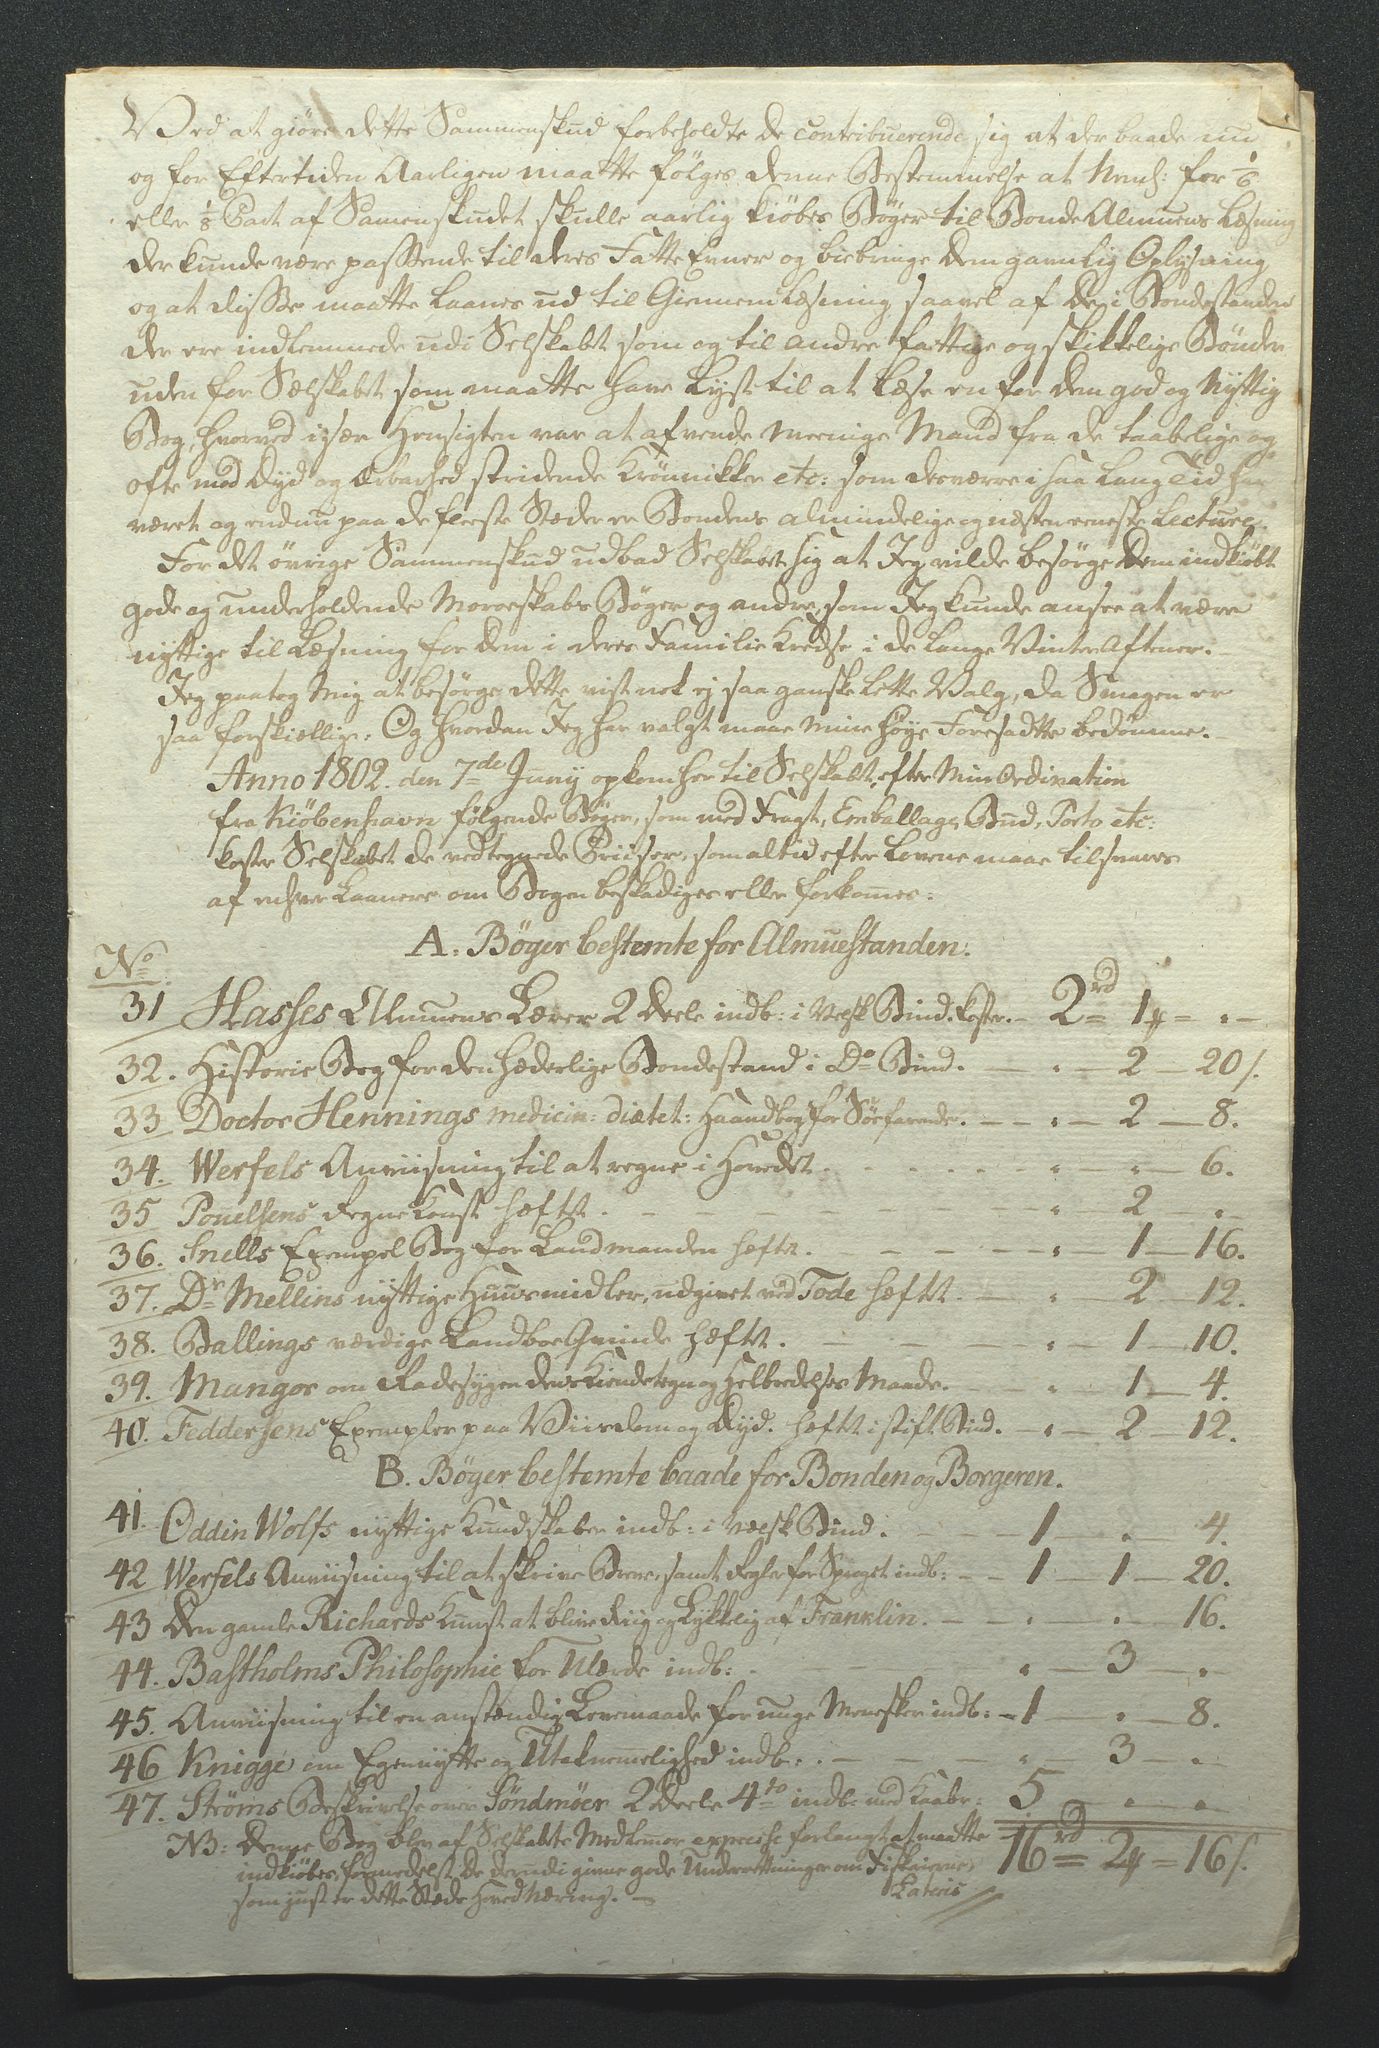 Ved at giöre dette Sammenskud forbeholdte de contribuerende sig at der baade nu
og for Eftertiden Aarligen maatte fölges denne Bestemmelse at Neml: for 1/6
eller 1/8 Part af Samenskudet skulle aarlig kiöbes Böger til Bonde Almuens Læsning
der kunde være passende til deres Fatte Evner og biebringe dem gavnlig Oplysning
og at disse maatte Laanes ud til Giennemlæsning saavel af de i Bondestanden
der ere indlemmede udi Selskabet som og til andre fattige og skikkelige Bönder
uden for Sælskabet som maatte have Lyst til at Læse en for dem god og Nyttig
Bog, hvorved især Hensigten var at afvende meenige Mand fra de taabelige og
ofte mod Dyd og Ærbarhed stridende Krönnikker etc: som desværre i saa Lang Tid har
været og endnu paa de fleeste Stæder er Bondens almindelige og næsten eeneste Lecture.
For det övrige Sammenskud udbad Selskabet sig at Jeg vilde besörge dem indkiöbt
gode og underholdende Moroeskabs Böger og andre, som Jeg kunde ansee at være
nyttige til Læsning for dem i deres Familie Kredse i de Lange Vinter Aftener.
Jeg paatog mig at besörge dette vist nok ej saa ganske Lette Valg, da Smagen er
saa forskiællig. Og hvordan Jeg har valgt maae mine Høye Foresadtte bedömme.
Anno 1802. den 7de Juny opkom her til Selskabet, efter Min Ordination
fra Kiöbenhavn fölgende Böger, som med Fragt, Emballage, Bud, Porto etc:
koster Selskabet de vedtegnede Priiser, som altid efter Lovene maae tilsvares
af enhver Laanere om Bogen beskadiges eller forkomes:
A. Böger bestemte for Almuestanden:
No
31 Hasses Almuens Lærer 2 Deele indb: i Velsk Bind. koster. 2rd = 1 ₰ = " —
32. Historie Bog for den hæderlige Bondestand i Do Bind. " — 2 — 20 s.
33 Doctor Hennings medicin: diætet: Haandbog for Söefarende. " — 2 — 8.
34. Werfels Anviisning til at regne i Hovedet. " " — 6.
35 Pouelsens Regne Konst hæftet. " 2 — "
36. Snells Exempel Bog for Landmanden hæftet. " 1 — 16.
37. Dr Mellins nyttige Huusmidler, udgivet ved Tode hæftet. " 2 — 12.
38. Ballings værdige Landboe Qvinde hæftet. " — 1 — 10.
39. Mangor om Radesygen dens Kiendetegn og Helbredelses Maade. " 1 — 4.
40. Feddersens Exempler paa Viisdom og Dyd. hæftet i stift Bind. " — 2 — 12.
B. Böger bestemte baade for Bonden og Borgeren.
41. Oddin Wolfs nyttige Kundskaber indb: i Velsk Bind. 1 — " 4.
42 Werfels Anviisning til at skrive Breve, samt Regler for Sproget indb: 1 — 1 — 20.
43 Den gamle Richards Kunst at blive Riig og Lykkelig af Franklin. " " — 16.
44. Bastholms Philosophie for Ulærde indb: " — 3 — "
45. Anviisning til en anstændig Levemaade for unge Menesker indb: 1 — " — 8.
46 Knigge om Egennytte og Utaknemelighed indb: " — 3 — "
47. Ströms Beskrivelse over Söndmöer 2 Deele 4to indb. med Kaabr: 5 — " — "
NB: Denne Bog blev af Selskabets Medlemer expresse forlangt at maatte
indkiöbes formedelst de derudi givne gode Underretninger om Fiskerierne,
som just er dette Stæds Hoved Næring. —
Lateris 16rd = 2 ₰ = 16 s.